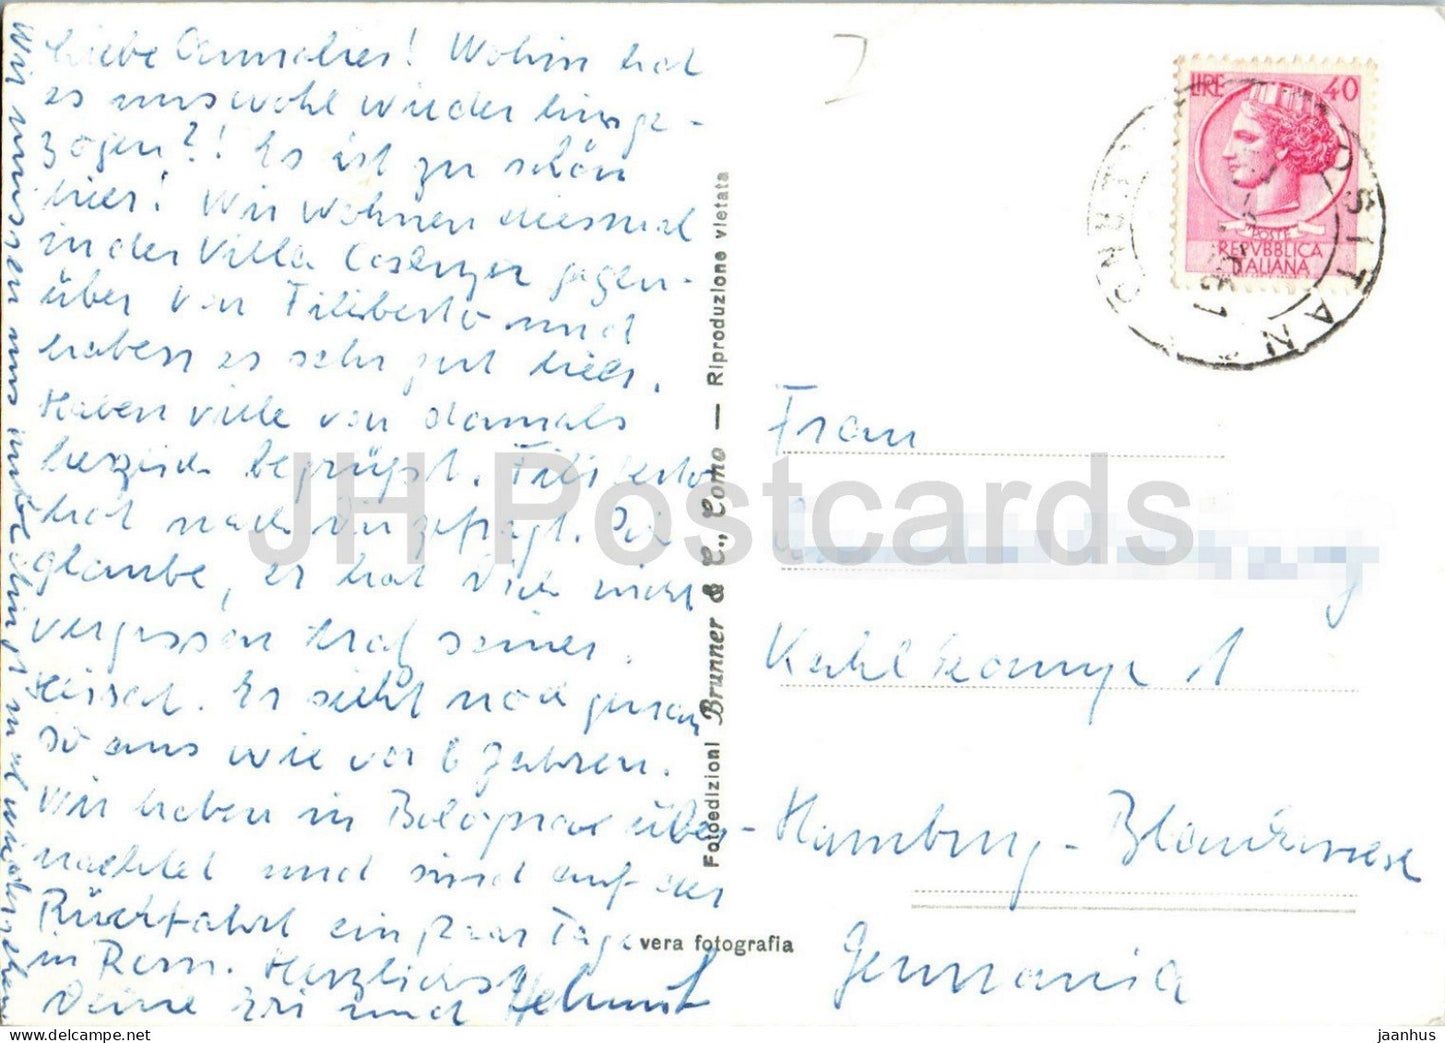 Liebe Annelies! Wohin hat
es uns wohl wieder hinge-
zogen?! Es ist zu schön
hier! Wir wohnen diesmal
in der Villa gegen-
über von Filiberto und
haben es sehr gut hier.
Haben viele von damals
herzlich begrüßt. Filiberto
hat nach Dir gefragt. Ich
glaube, er hat Dich nicht
vergessen trotz seiner
Es sieht noch genau
so aus wie vor 6 Jahren.
Wir haben in Bologna über-
nachtet und sind auf der
Rückfahrt ein paar Tage
in Rom. Herzlichst
Deine und Helmut
Wir müssen uns unbedingt mal wiedersehen
Fotoedizioni Brunner & C., Como — Riproduzione vietata
vera fotografia
LIRE 40
POSTE
REPVBBLICA
ITALIANA
POSITANO
Frau
1
Hamburg-Blankenese
Germania
JH Postcards
jaanhus